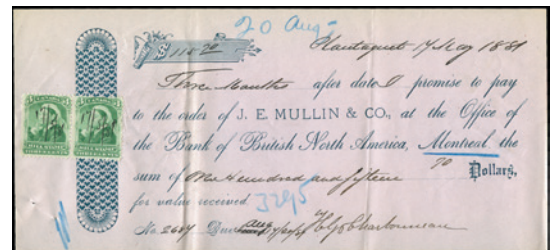 20 Aug
115 70/ Plantagenet 17 May 1881
Three Months after date I promise to pay
to the order of J. E. MULLIN & CO., at the Office of
the Bank of British North America, Montreal the
sum of One Hundred and fifteen 70 Dollars,
for value received. 3295
No. 2607 Due Aug 17/20/81 Charbonneau